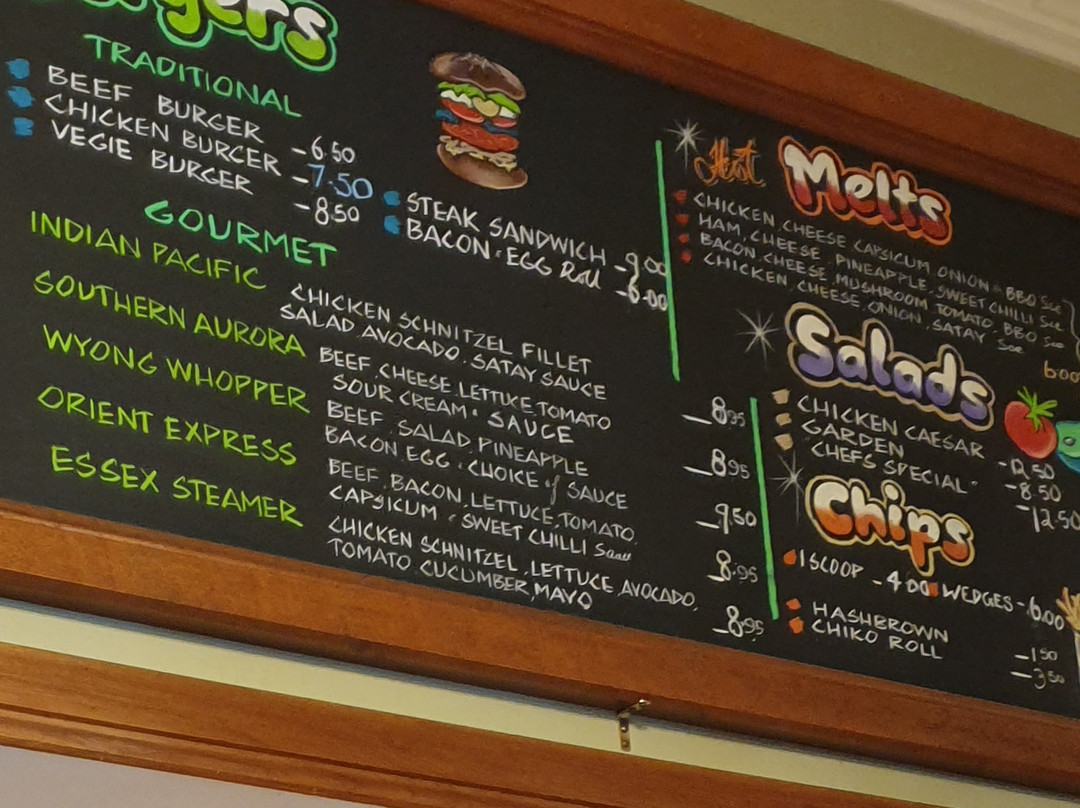 TRADITIONAL
BEEF BURGER -6.50
CHICKEN BURGER -7.50
VEGIE BURGER -8.50
STEAK SANDWICH -9.00
BACON & EGG Roll -6.00
GOURMET
INDIAN PACIFIC CHICKEN SCHNITZEL FILLET
SALAD, AVOCADO, SATAY SAUCE -8.95
SOUTHERN AURORA BEEF, CHEESE, LETTUCE, TOMATO
SOUR CREAM & SAUCE -8.95
WYONG WHOPPER BEEF, SALAD, PINEAPPLE
BACON, EGG & CHOICE of SAUCE -9.50
ORIENT EXPRESS BEEF, BACON, LETTUCE, TOMATO,
CAPSICUM & SWEET CHILLI Sauce -8.95
ESSEX STEAMER CHICKEN SCHNITZEL, LETTUCE, AVOCADO,
TOMATO, CUCUMBER, MAYO -8.95
Hot Melts
CHICKEN, CHEESE CAPSICUM ONION & BBQ Sce
HAM, CHEESE, PINEAPPLE, SWEET CHILLI Sce
BACON, CHEESE, MUSHROOM, TOMATO, BBQ Sce
CHICKEN, CHEESE, ONION, SATAY Sce
Salads
CHICKEN CAESAR -12.50
GARDEN -8.50
"CHEFS SPECIAL" -12.50
Chips
1 SCOOP -4.00 WEDGES -6.00
HASHBROWN -1.50
CHIKO ROLL -3.50